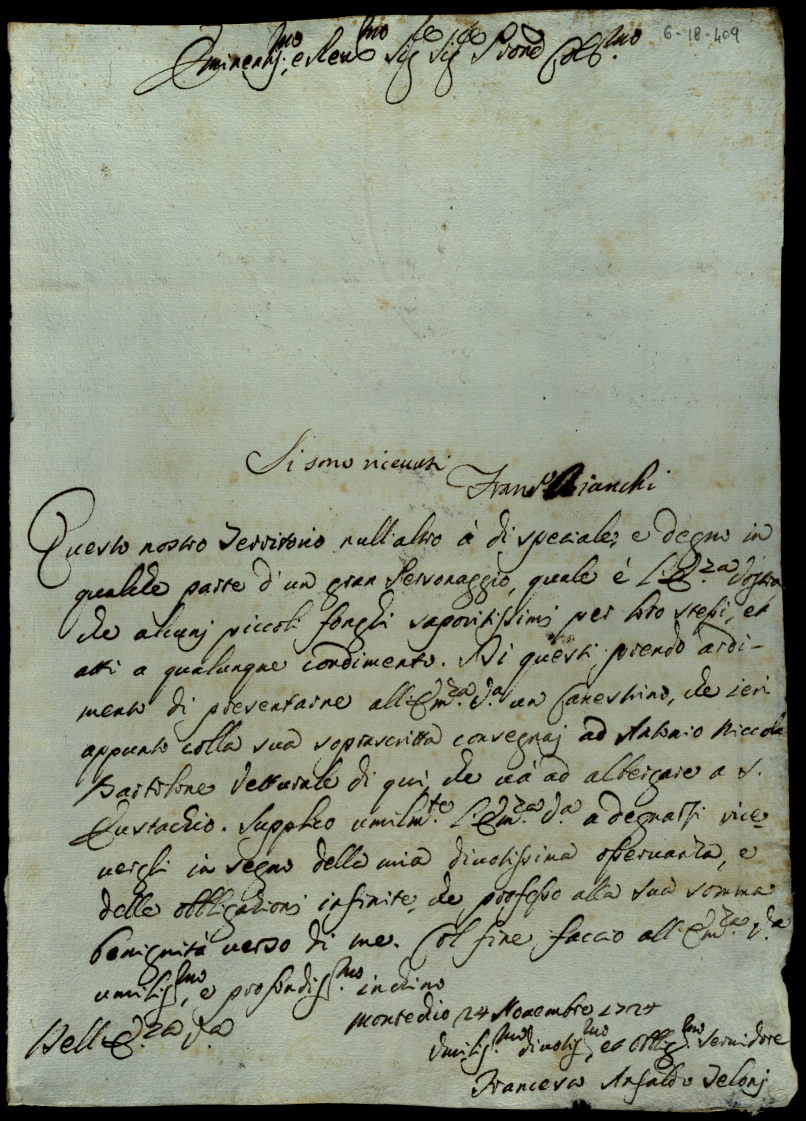 6-18-409
Eminentiss.mo, e Rev.mo Sig.re Sig.re Prone Col.mo
Si sono ricevuti
Fran.co Bianchi
Questo nostro Territorio null'altro à di speziale, e degno in
qualche parte d'un gran Personaggio, quale è l'E.za Vostra,
che alcunj piccoli fonghi saporitissimj per loro stessi, et
atti a qualunque condimento. Di questi prendo ardi-
mento di presentarne all'Em.za V.a un Canestrino, che ieri
appunto colla sua soprascritta consegnaj ad Antonio Niccola
Bartolone Vetturale di qui che và ad albergare a S.
Eustachio. Supplico umilm.te l'Em.za V.a a degnarsi rice-
vergli in segno della mia divotissima osservanza, e
delle obbligazionj infinite, che professo alla sua somma
benignità verso di me. Col fine faccio all'Em.za V.a
umiliss.mo, e profondiss.mo inchino
Dell'E.za V.a
Montecchio 24 Novembre 1727
Umilis.mo divotis.mo, et obblig.mo Servidore
Francesco Ansaldo Telonj